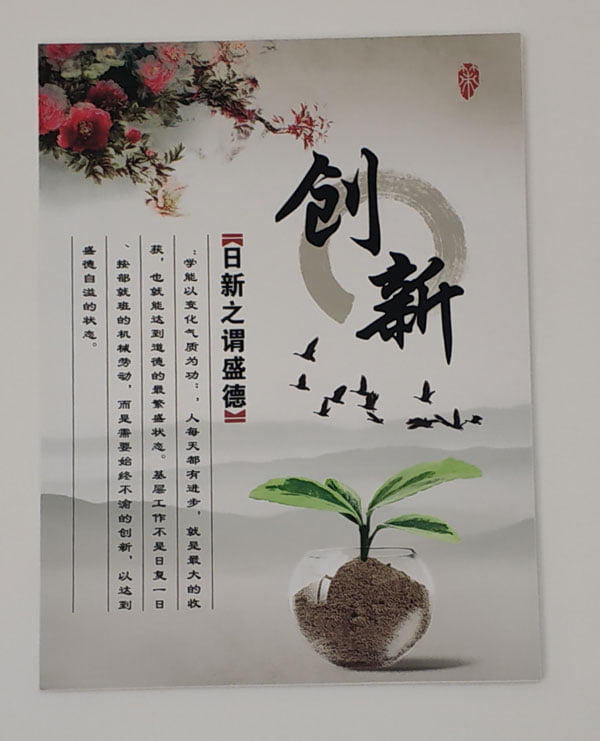 创新
【日新之谓盛德】
：学能以变化气质为功：，人每天都有进步，就是最大的收
获，也就能达到道德的最繁盛状态。基层工作不是日复一日
、按部就班的机械劳动，而是需要始终不渝的创新，以达到
盛德自溢的状态。